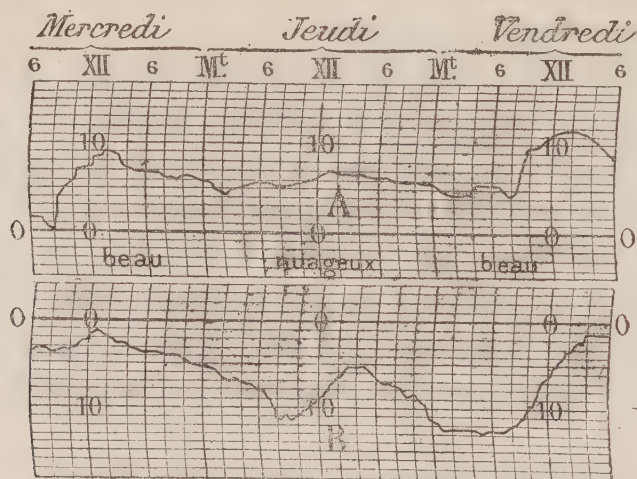 Mercredi Jeudi Vendredi
6 XII 6 Mt. 6 XII 6 Mt. 6 XII 6
10 10 10
A
0 0 0 0 0
beau nuageux beau
0 0 0 0 0
10 10 10
B